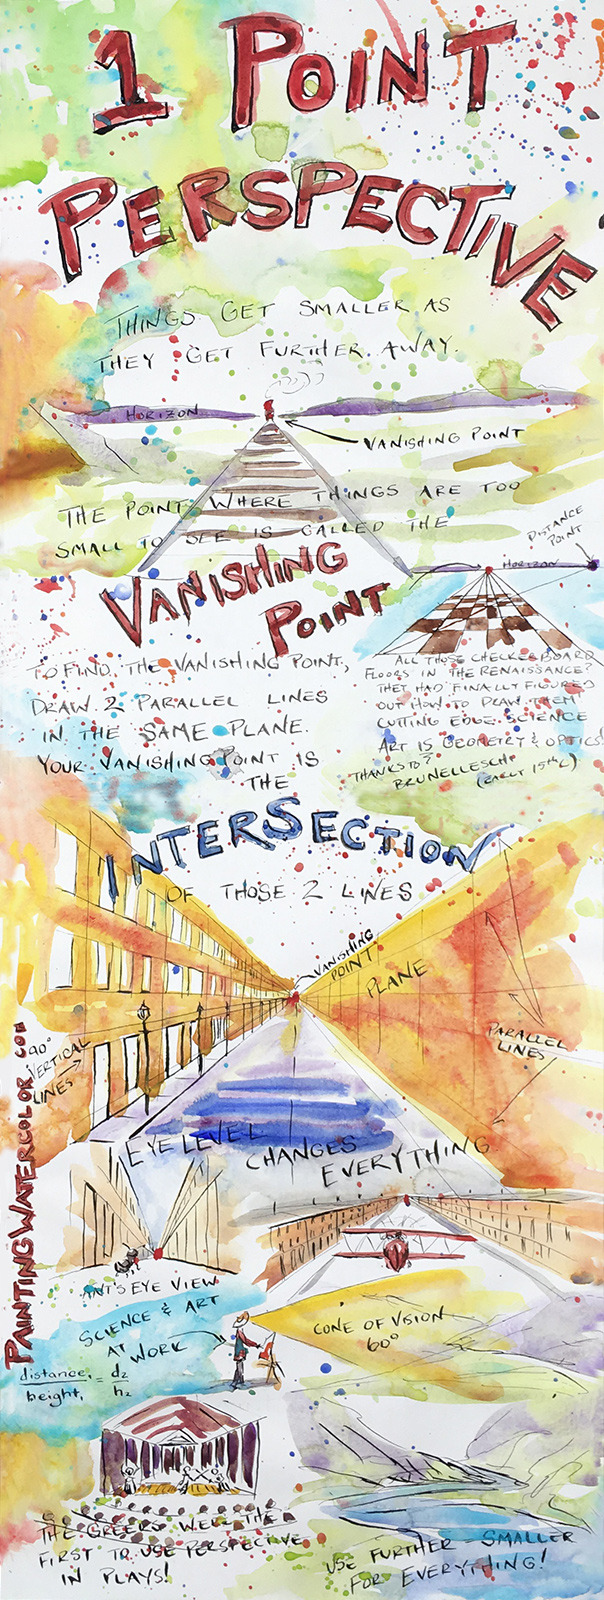 1 POINT
PERSPECTIVE
THINGS GET SMALLER AS
THEY GET FURTHER AWAY.
HORIZON
VANISHING POINT
THE POINT WHERE THINGS ARE TOO
SMALL TO SEE IS CALLED THE
VANISHING
POINT
DISTANCE
POINT
HORIZON
TO FIND THE VANISHING POINT,
DRAW 2 PARALLEL LINES
IN THE SAME PLANE.
YOUR VANISHING POINT IS
THE
ALL THOSE CHECKERBOARD
FLOORS IN THE RENAISSANCE?
THEY HAD FINALLY FIGURED
OUT HOW TO DRAW THEM
CUTTING EDGE SCIENCE
ART IS GEOMETRY & OPTICS!
THANKS TO?
BRUNELLESCHI
(EARLY 15TH C)
INTERSECTION
OF THOSE 2 LINES
VANISHING
POINT
PLANE
PARALLEL
LINES
90°
VERTICAL
LINES
PAINTINGWATERCOLOR.COM
EYE LEVEL CHANGES EVERYTHING
ANT'S EYE VIEW
SCIENCE & ART
AT
WORK
distance₁ = d₂
height₁ h₂
CONE OF VISION
60°
THE GREEKS WERE THE
FIRST TO USE PERSPECTIVE
IN PLAYS!
USE FURTHER SMALLER
FOR EVERYTHING!